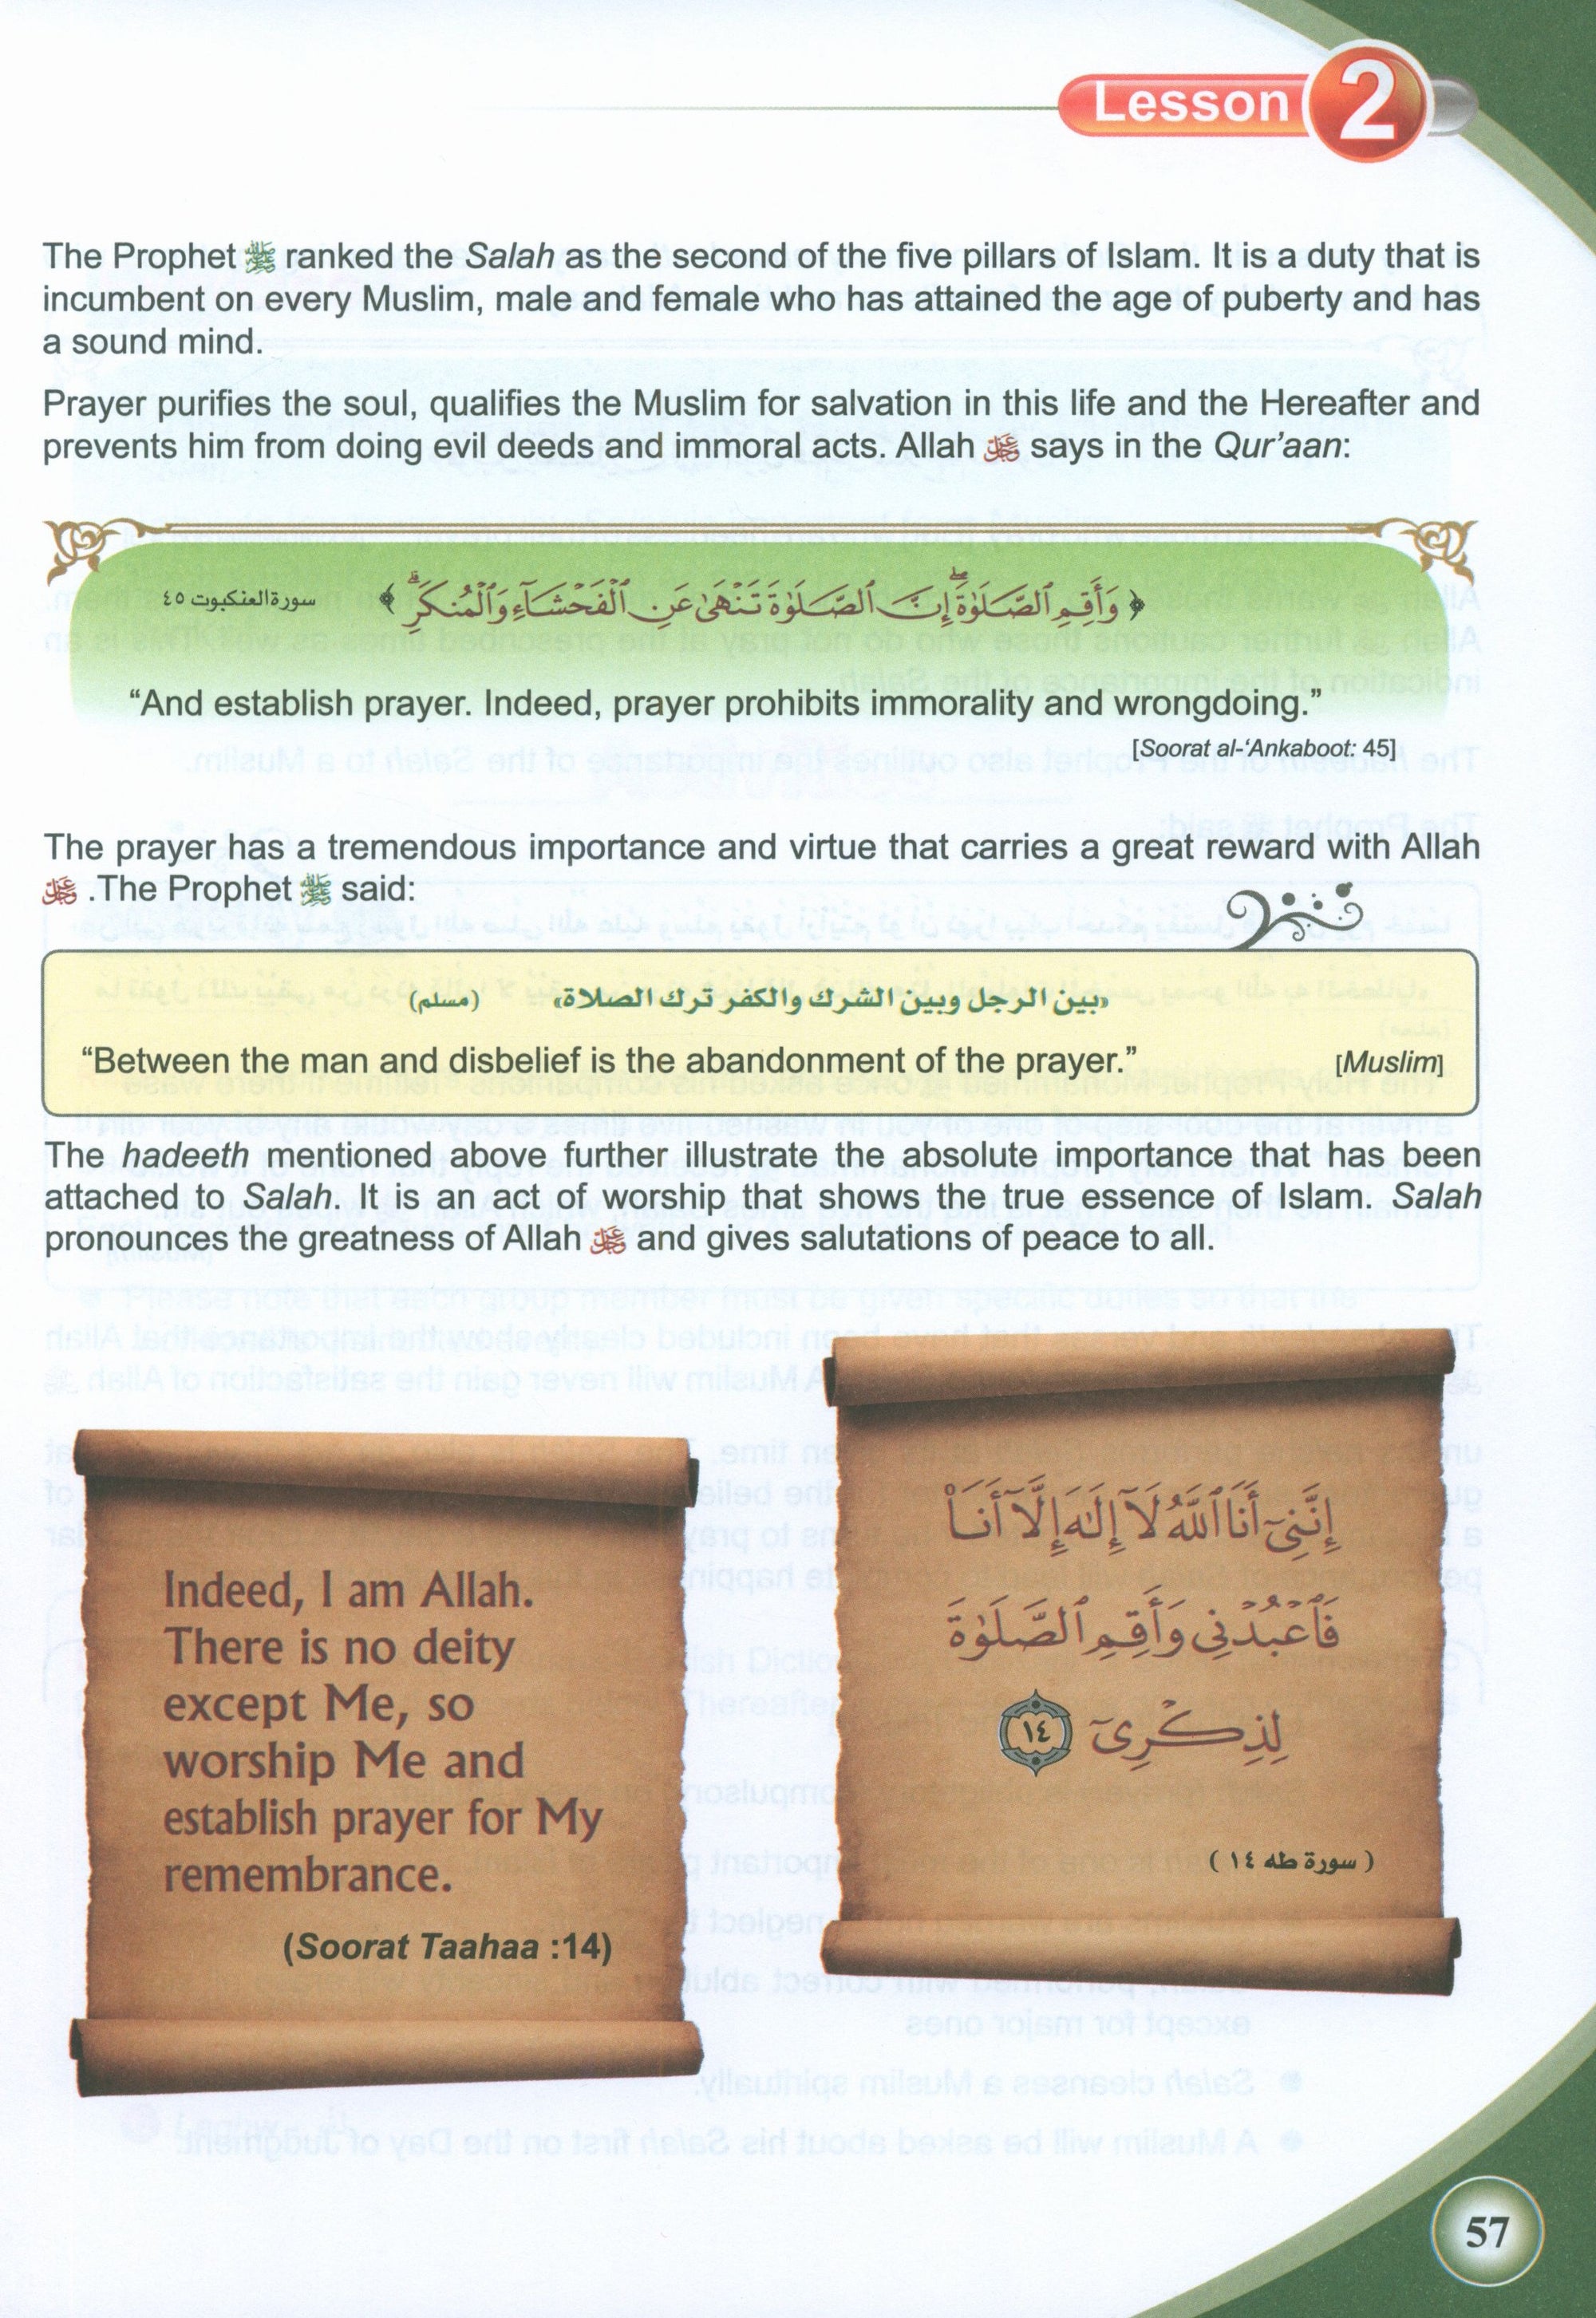 Lesson 2
The Prophet ﷺ ranked the Salah as the second of the five pillars of Islam. It is a duty that is
incumbent on every Muslim, male and female who has attained the age of puberty and has
a sound mind.
Prayer purifies the soul, qualifies the Muslim for salvation in this life and the Hereafter and
prevents him from doing evil deeds and immoral acts. Allah عَزَّوَجَلَّ says in the Qur’aan:
﴿ وَأَقِمِ ٱلصَّلَوٰةَۖ إِنَّ ٱلصَّلَوٰةَ تَنْهَىٰ عَنِ ٱلْفَحْشَآءِ وَٱلْمُنكَرِۗ ﴾ سورة العنكبوت ٤٥
“And establish prayer. Indeed, prayer prohibits immorality and wrongdoing.”
[Soorat al-‘Ankaboot: 45]
The prayer has a tremendous importance and virtue that carries a great reward with Allah
عَزَّوَجَلَّ .The Prophet ﷺ said:
«بين الرجل وبين الشرك والكفر ترك الصلاة» (مسلم)
“Between the man and disbelief is the abandonment of the prayer.” [Muslim]
The hadeeth mentioned above further illustrate the absolute importance that has been
attached to Salah. It is an act of worship that shows the true essence of Islam. Salah
pronounces the greatness of Allah عَزَّوَجَلَّ and gives salutations of peace to all.
Indeed, I am Allah.
There is no deity
except Me, so
worship Me and
establish prayer for My
remembrance.
(Soorat Taahaa :14)
إِنَّنِىٓ أَنَا ٱللَّهُ لَآ إِلَٰهَ إِلَّآ أَنَا۠
فَٱعْبُدْنِى وَأَقِمِ ٱلصَّلَوٰةَ
لِذِكْرِىٓ ١٤
( سورة طه ١٤ )
57